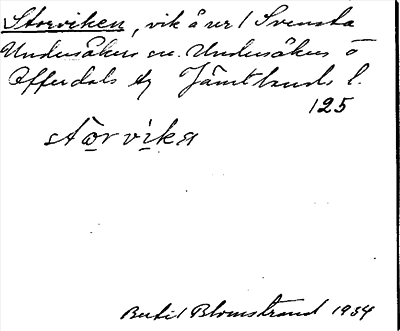 Storviken, vik å nr 1 Svensta
Undersåkers sn. Undersåkers o
Offerdals tg Jämtlands l.
125
stòrvika
Bertil Blomstrand 1934